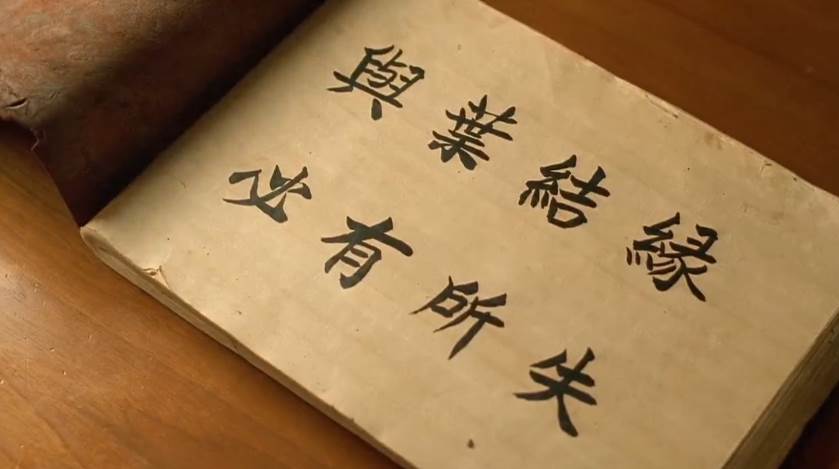 與葉結緣
必有所失